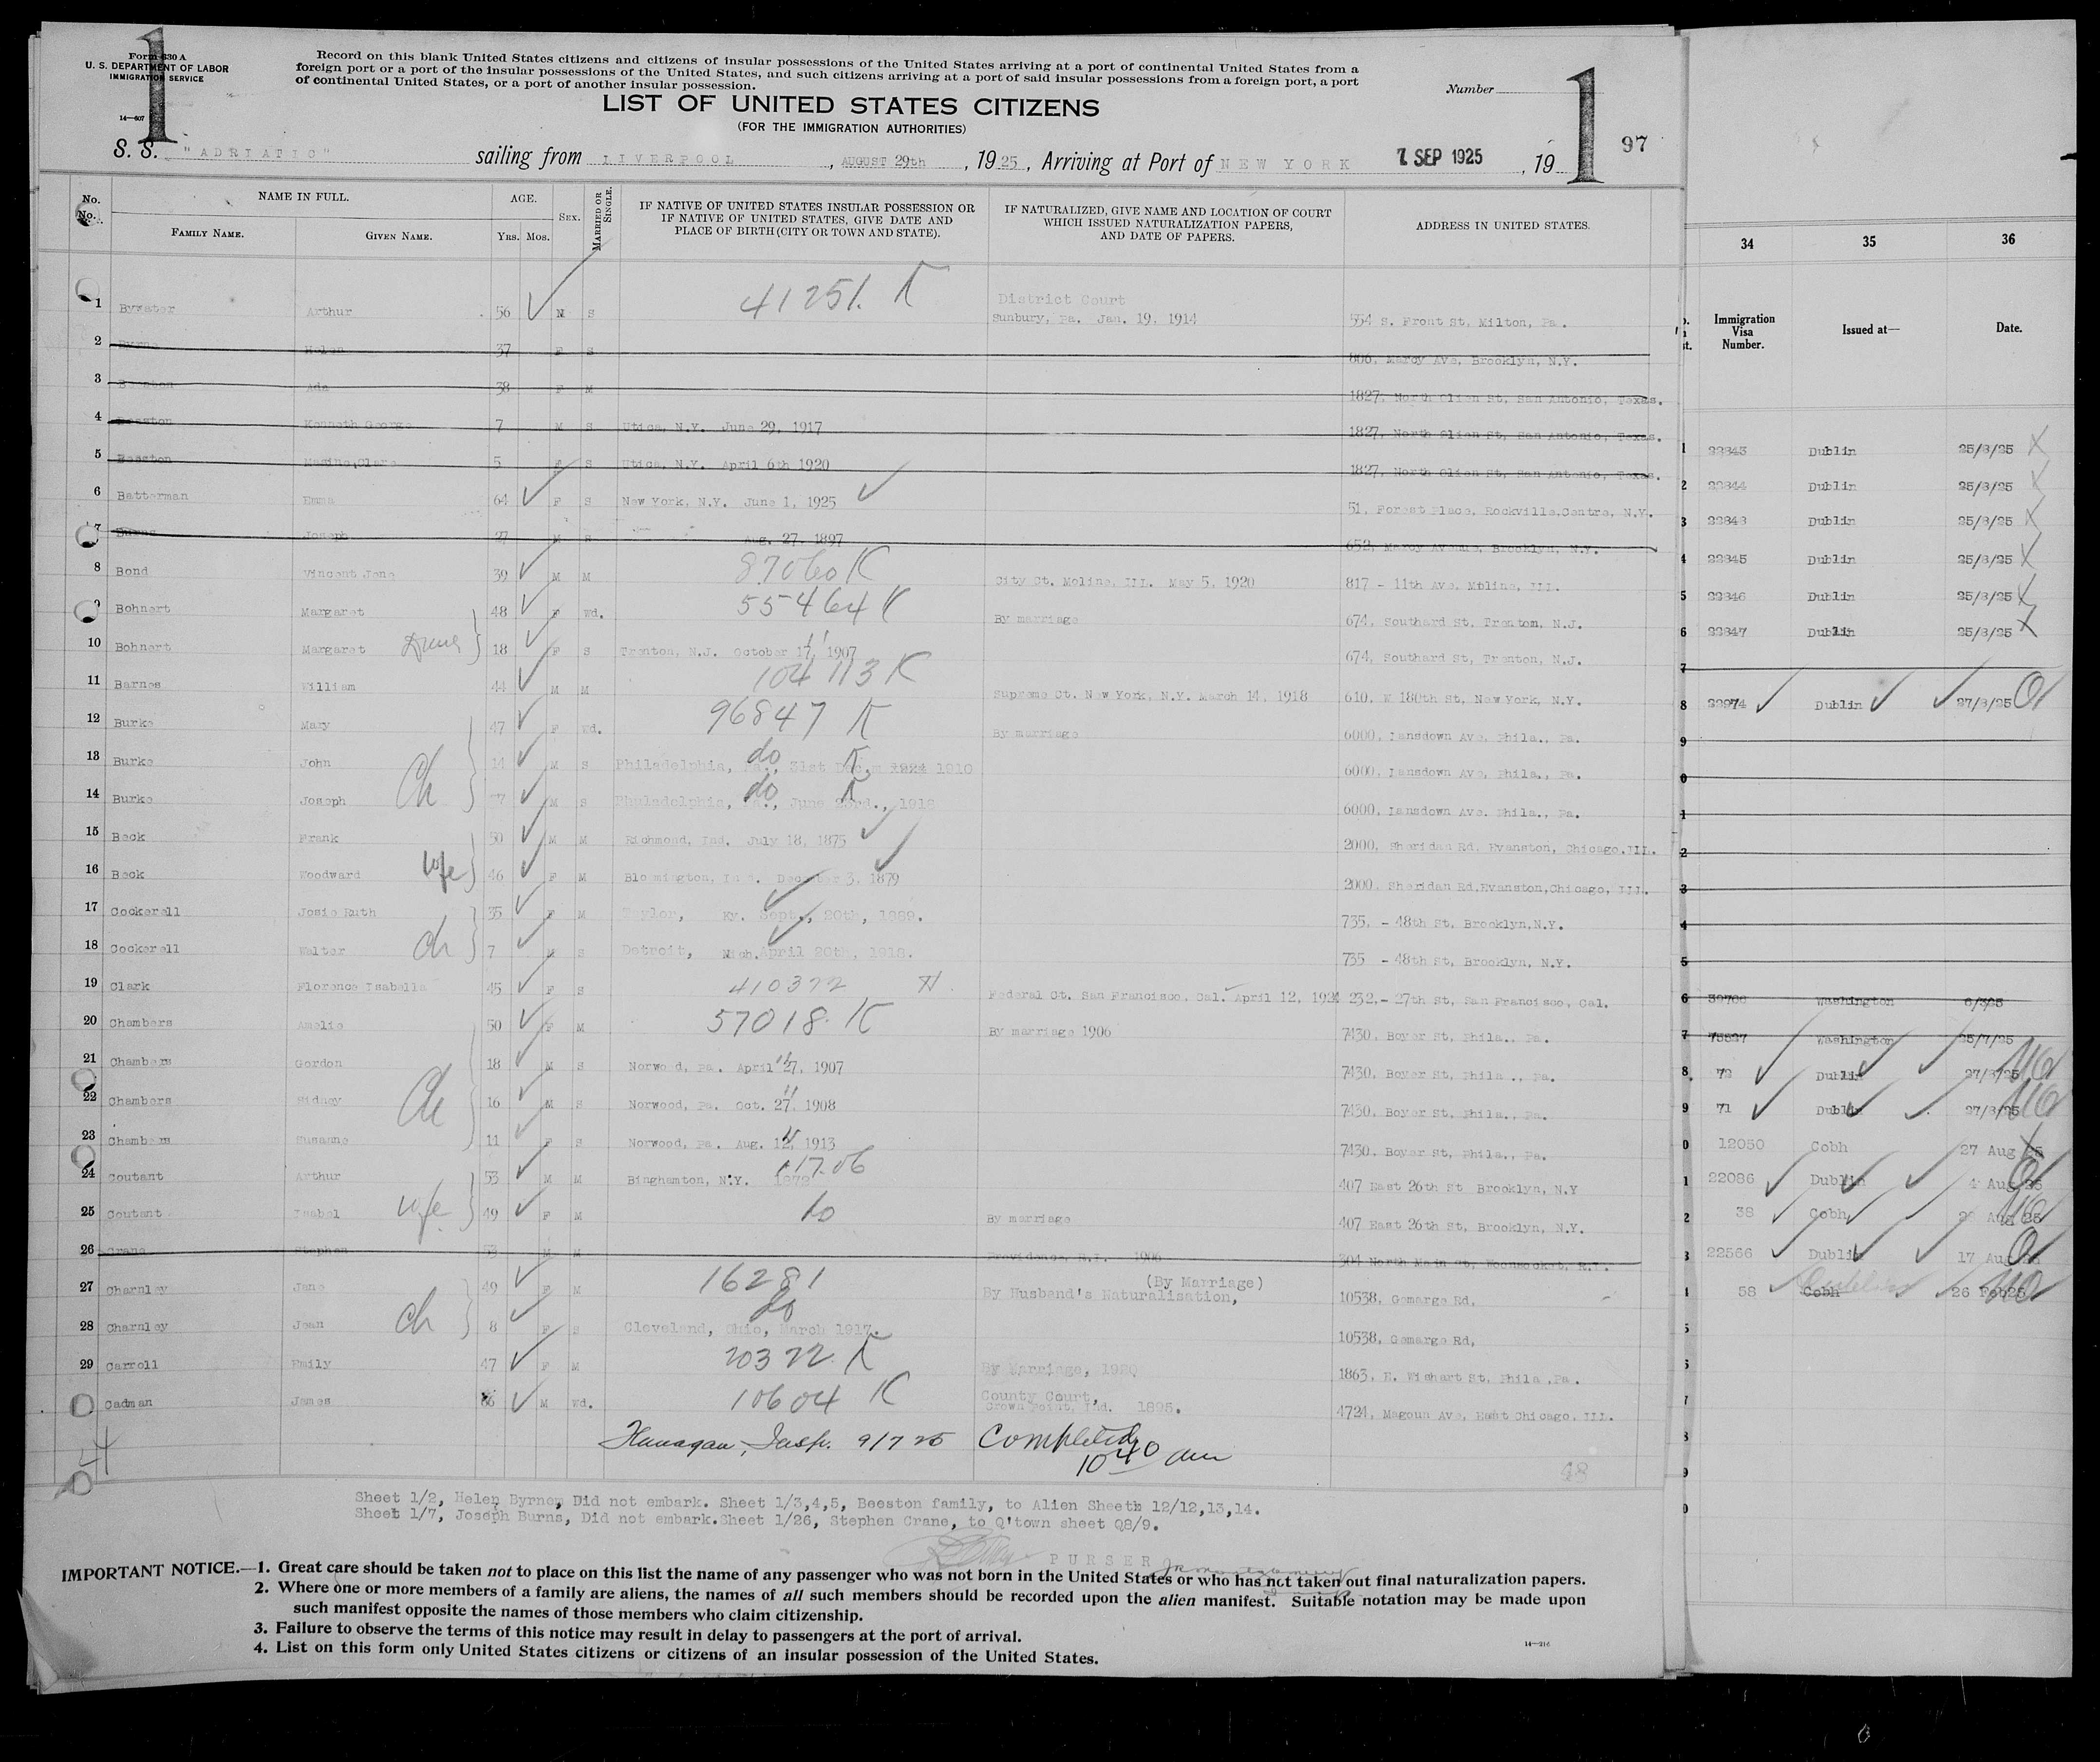 Form 630 A
U. S. DEPARTMENT OF LABOR
IMMIGRATION SERVICE
14—607
1
Record on this blank United States citizens and citizens of insular possessions of the United States arriving at a port of continental United States from a
foreign port or a port of the insular possessions of the United States, and such citizens arriving at a port of said insular possessions from a foreign port, a port
of continental United States, or a port of another insular possession.
Number
1
97
LIST OF UNITED STATES CITIZENS
(FOR THE IMMIGRATION AUTHORITIES)
S. S. "ADRIATIC" sailing from LIVERPOOL, AUGUST 29th, 1925, Arriving at Port of NEW YORK 7 SEP 1925, 19
No. NAME IN FULL. AGE. SEX. MARRIED OR SINGLE. IF NATIVE OF UNITED STATES INSULAR POSSESSION OR IF NATIVE OF UNITED STATES, GIVE DATE AND PLACE OF BIRTH (CITY OR TOWN AND STATE). IF NATURALIZED, GIVE NAME AND LOCATION OF COURT WHICH ISSUED NATURALIZATION PAPERS, AND DATE OF PAPERS. ADDRESS IN UNITED STATES.
No. FAMILY NAME. GIVEN NAME. YRS. MOS.
1 Bywater Arthur 56 M S 41251. District Court Sunbury, Pa. Jan. 19, 1914 554 S. Front St, Milton, Pa.
2 Byrne Helen 37 F S 606, Marcy Ave, Brooklyn, N.Y.
3 Beeston Ada 38 F M 1827, North Olien St, San Antonio, Texas.
4 Beeston Kenneth George 7 M S Utica, N.Y. June 29, 1917 1827, North Olien St, San Antonio, Texas.
5 Beeston 5 F S Utica, N.Y. April 6th 1920 1827, North Olien St, San Antonio, Texas.
6 Batterman Emma 64 F S New York, N.Y. June 1, 1925 51, Forest Place, Rockville, Centre, N.Y.
7 Burns Joseph 27 M S Aug. 27. 1897 652, Marcy Avenue, Brooklyn, N.Y.
8 Bond Vincent Jens 39 M M 87060 K City Ct. Moline, Ill. May 5, 1920 817 - 11th Ave, Moline, Ill.
9 Bohnert Margaret 48 F Wd. 55464 K By marriage 674, Southard St. Trenton, N.J.
10 Bohnert Margaret 18 F S Trenton, N.J. October 17, 1907 674, Southard St, Trenton, N.J.
11 Barnes William 44 M M 104113 K Supreme Ct. New York, N.Y. March 14, 1918 610, W 180th St, New York, N.Y.
12 Burke Mary 47 F Wd. 96847 K By marriage 6000, Lansdown Ave, Phila., Pa.
13 Burke John Ch 14 M S Philadelphia, Pa., 31st Dec. 1910 do K 6000, Lansdown Ave, Phila., Pa.
14 Burke Joseph 7 M S Philadelphia, Pa., June 23rd., 1918 do K 6000, Lansdown Ave. Phila., Pa.
15 Beck Frank 50 M M Richmond, Ind. July 18, 1875 2000, Sheridan Rd. Evanston, Chicago.Ill.
16 Beck Woodward wife 46 F M Bloomington, Ind. December 3, 1879 2000, Sheridan Rd.Evanston,Chicago, Ill.
17 Cockerell Josie Ruth 35 F M Taylor, Ky. Sept., 20th, 1889. 735, - 48th St, Brooklyn,N.Y.
18 Cockerell Walter Ch 7 M S Detroit, Mich. April 20th, 1918. 735 - 48th St, Brooklyn, N.Y.
19 Clark Florence Isabella 45 F S 410372 Federal Ct. San Francisco, Cal. April 12, 1924 232,- 27th St, San Francisco, Cal.
20 Chambers Amelie 50 F M 57018 K By marriage 1906 7430, Boyer St, Phila., Pa.
21 Chambers Gordon 18 M S Norwood, Pa. April 27, 1907 7430, Boyer St, Phila., Pa.
22 Chambers Sidney Ch 16 M S Norwood, Pa. Oct. 27, 1908 7430, Boyer St, Phila., Pa.
23 Chambers Susanne 11 F S Norwood, Pa. Aug. 12, 1913 7430, Boyer St, Phila., Pa.
24 Coutant Arthur 53 M M Binghamton, N.Y. 1872 407 East 26th St Brooklyn, N.Y
25 Coutant Isabel wife 49 F M do By marriage 407 East 26th St, Brooklyn, N.Y.
26 Crane Stephen 53 M M Providence, R.I. 1906 304 North Main St, Woonsocket, R.I.
27 Charnley Jane 49 F M 16281 (By Marriage) By Husband's Naturalisation, 10538, Gemarge Rd,
28 Charnley Jean Ch 8 F S do Cleveland, Ohio, March 1917. 10538, Gemarge Rd,
29 Carroll Emily 47 F M 20322 K By Marriage, 1920 1863, E. Wishart St, Phila.Pa.
30 Cadman James 66 M Wd. 10604 K County Court, Crown Point, Ind. 1895. 4724, Magoun Ave, East Chicago, Ill.
Flanagan, Insp. 9/7 25 Completed 10 40 am
98
Sheet 1/2, Helen Byrne, Did not embark. Sheet 1/3,4,5, Beeston family, to Alien Sheets 12/12,13,14.
Sheet 1/7, Joseph Burns, Did not embark.Sheet 1/26, Stephen Crane, to Q'town sheet Q8/9.
PURSER
IMPORTANT NOTICE.—1. Great care should be taken not to place on this list the name of any passenger who was not born in the United States or who has not taken out final naturalization papers.
2. Where one or more members of a family are aliens, the names of all such members should be recorded upon the alien manifest. Suitable notation may be made upon
such manifest opposite the names of those members who claim citizenship.
3. Failure to observe the terms of this notice may result in delay to passengers at the port of arrival.
4. List on this form only United States citizens or citizens of an insular possession of the United States.
14—216
34 35 36
Immigration Visa Number. Issued at— Date.
1 22343 Dublin 25/8/25
2 22344 Dublin 25/8/25
3 22348 Dublin 25/8/25
4 22345 Dublin 25/8/25
5 22346 Dublin 25/8/25
6 22347 Dublin 25/8/25
7
8 22974 Dublin 27/8/25
9
0
1
2
3
4
5
6 30706 Washington
7 Washington 25/7/25
8 72 Dublin 27/8/25
9 71 Dublin 27/8/25
0 12050 Cobh 27 Aug 25
1 22086 Dublin 4 Aug 25
2 38 Cobh Aug 25
3 22566 Dublin 17 Aug
58 Cobh 26 Feb25
5
6
7
8
9
0